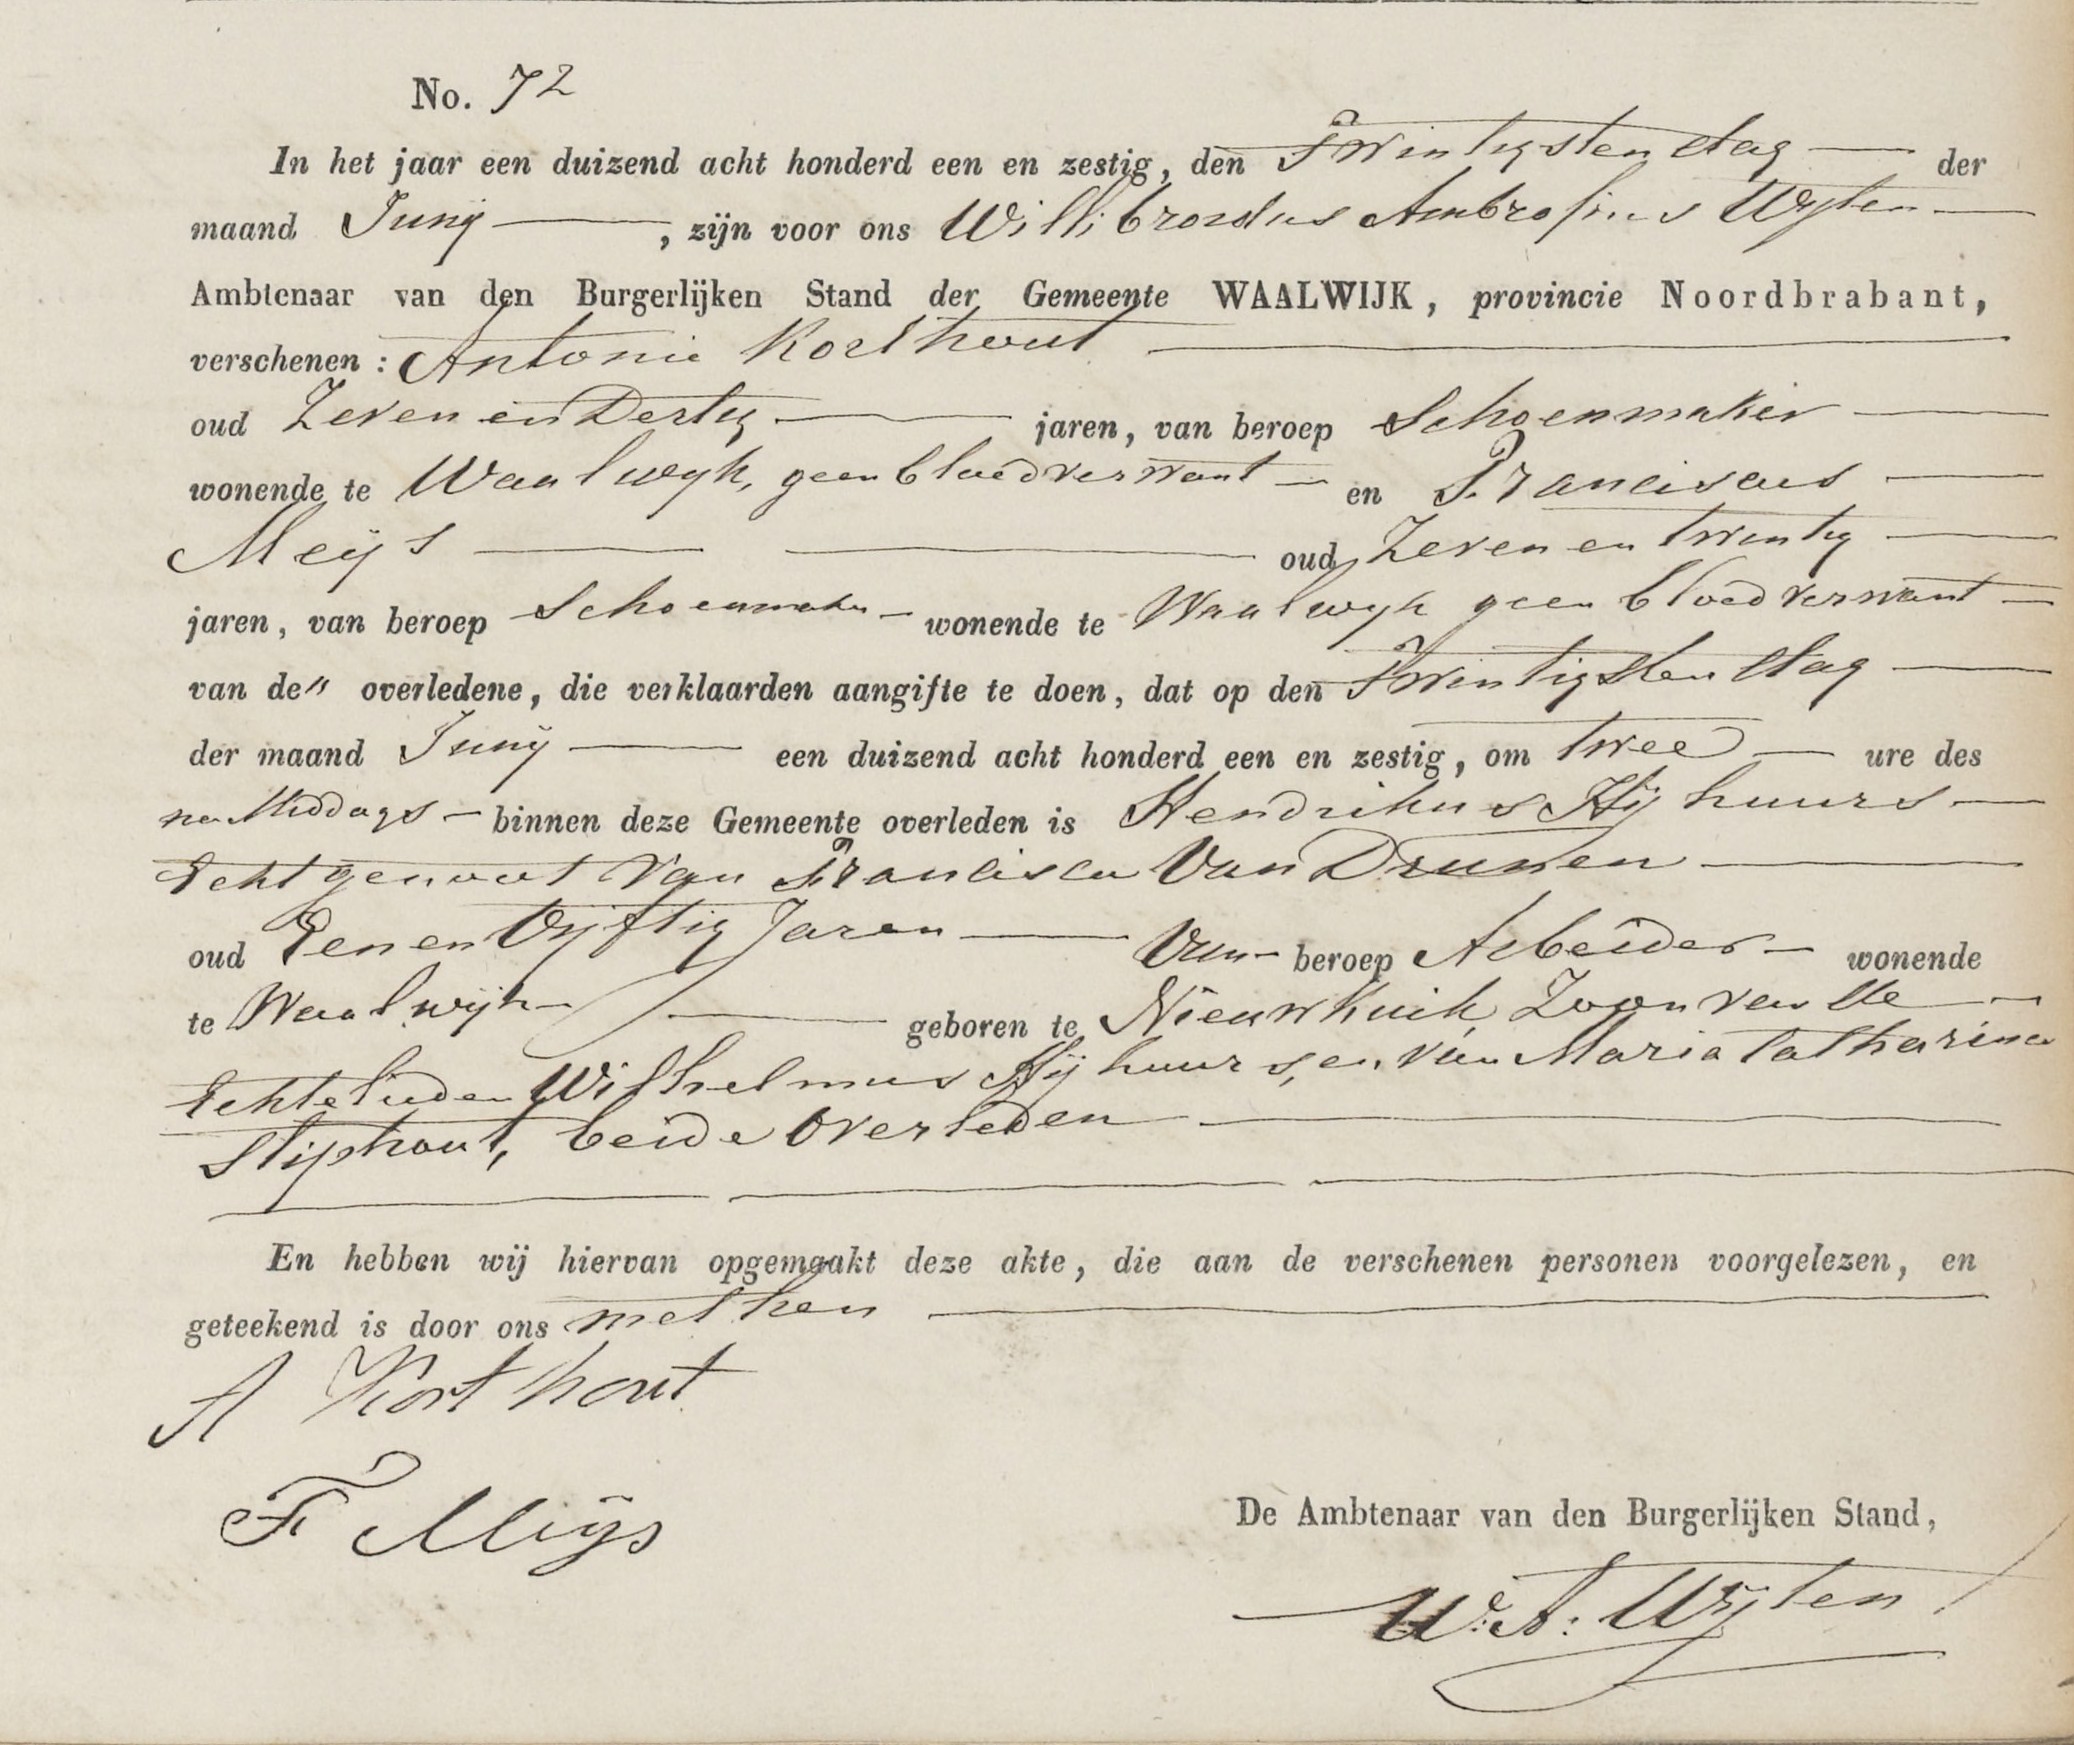 No. 72
In het jaar een duizend acht honderd een en zestig, den Twintigsten dag der
maand Junij, zijn voor ons Willibrordus Ambrosius Wijten
Ambtenaar van den Burgerlijken Stand der Gemeente WAALWIJK, provincie Noordbrabant,
verschenen: Antonie Korthout
oud Zeven en Dertig jaren, van beroep Schoenmaker
wonende te Waalwyk, geen bloedverwant en Franciscus
Meijs oud Zeven en twintig
jaren, van beroep Schoenmaker wonende te Waalwyk geen bloedverwant
van de" overledene, die verklaarden aangifte te doen, dat op den Twintigsten dag
der maand Junij een duizend acht honderd een en zestig, om twee ure des
na Middags binnen deze Gemeente overleden is Hendrikus Hijhuurs
Echtgenoot van Francisca Van Drunen
oud Een en Vijftig Jaren Van beroep Arbeider wonende
te Waalwijk geboren te Nieuwkuik, Zoon van de
Echtelieden Wilhelmus Hijhuurs, en van Maria Catharina
Stiphout, beide overleden
En hebben wij hiervan opgemaakt deze akte, die aan de verschenen personen voorgelezen, en
geteekend is door ons met hen
A Korthout
F Mijs
De Ambtenaar van den Burgerlijken Stand,
W: A: Wijten